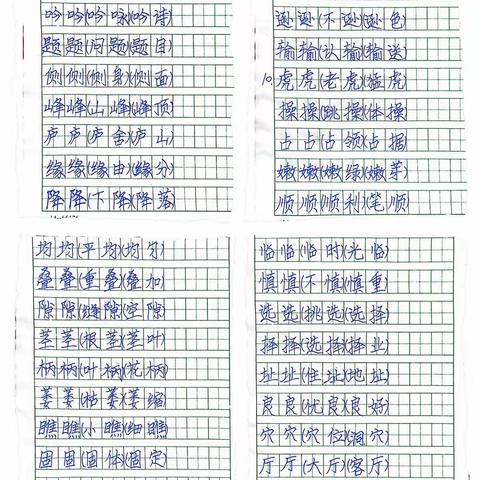 吟吟(吟咏)(吟诗)
题题(问题)(题目)
侧侧(侧身)(侧面)
峰峰(山峰)(峰顶)
庐庐(庐舍)(庐山)
缘缘(缘由)(缘分)
降降(下降)(降落)
逊逊(不逊)(逊色)
输输(认输)(输送)
10虎虎(老虎)(猛虎)
操操(跳操)(体操)
占占(占领)(占据)
嫩嫩(嫩绿)(嫩芽)
顺顺(顺利)(笔顺)
均均(平均)(均匀)
叠叠(重叠)(叠加)
隙隙(缝隙)(空隙)
茎茎(根茎)(茎叶)
柄柄(叶柄)(花柄)
萎萎(枯萎)(萎缩)
瞧瞧(小瞧)(细瞧)
固固(固体)(固定)
临临(临时)(光临)
慎慎(不慎)(慎重)
选选(挑选)(选择)
择择(选择)(择业)
址址(住址)(地址)
良良(优良)(良好)
穴穴(穴位)(洞穴)
厅厅(大厅)(客厅)